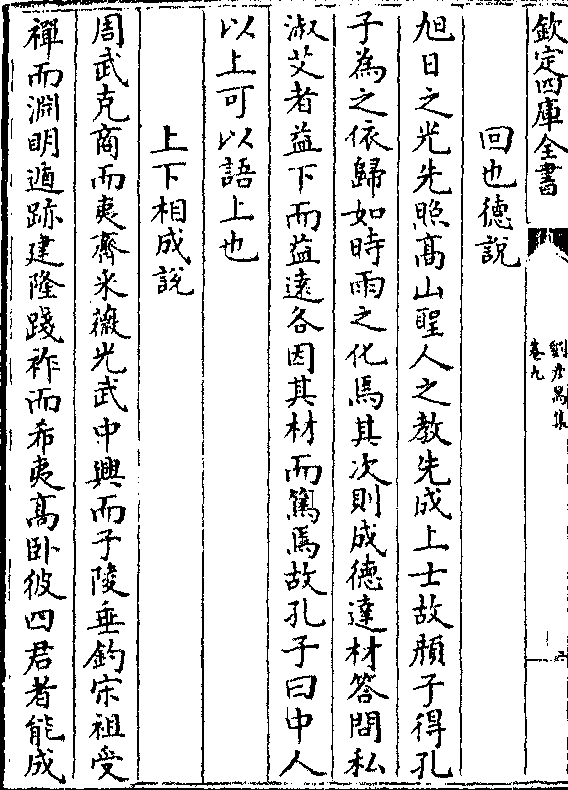 欽定四庫全書
劉彥昺集
卷九
回也德說
旭日之光先照髙山聖人之教先成上士故顔子得孔
子為之依歸如時雨之化焉其次則成德達材答問私
淑艾者益下而益遠各因其材而篤焉故孔子曰中人
以上可以語上也
上下相成說
周武克商而夷齊采薇光武中興而子陵垂釣宋祖受
禪而淵明遁跡建隆踐祚而希夷髙卧彼四君者能成